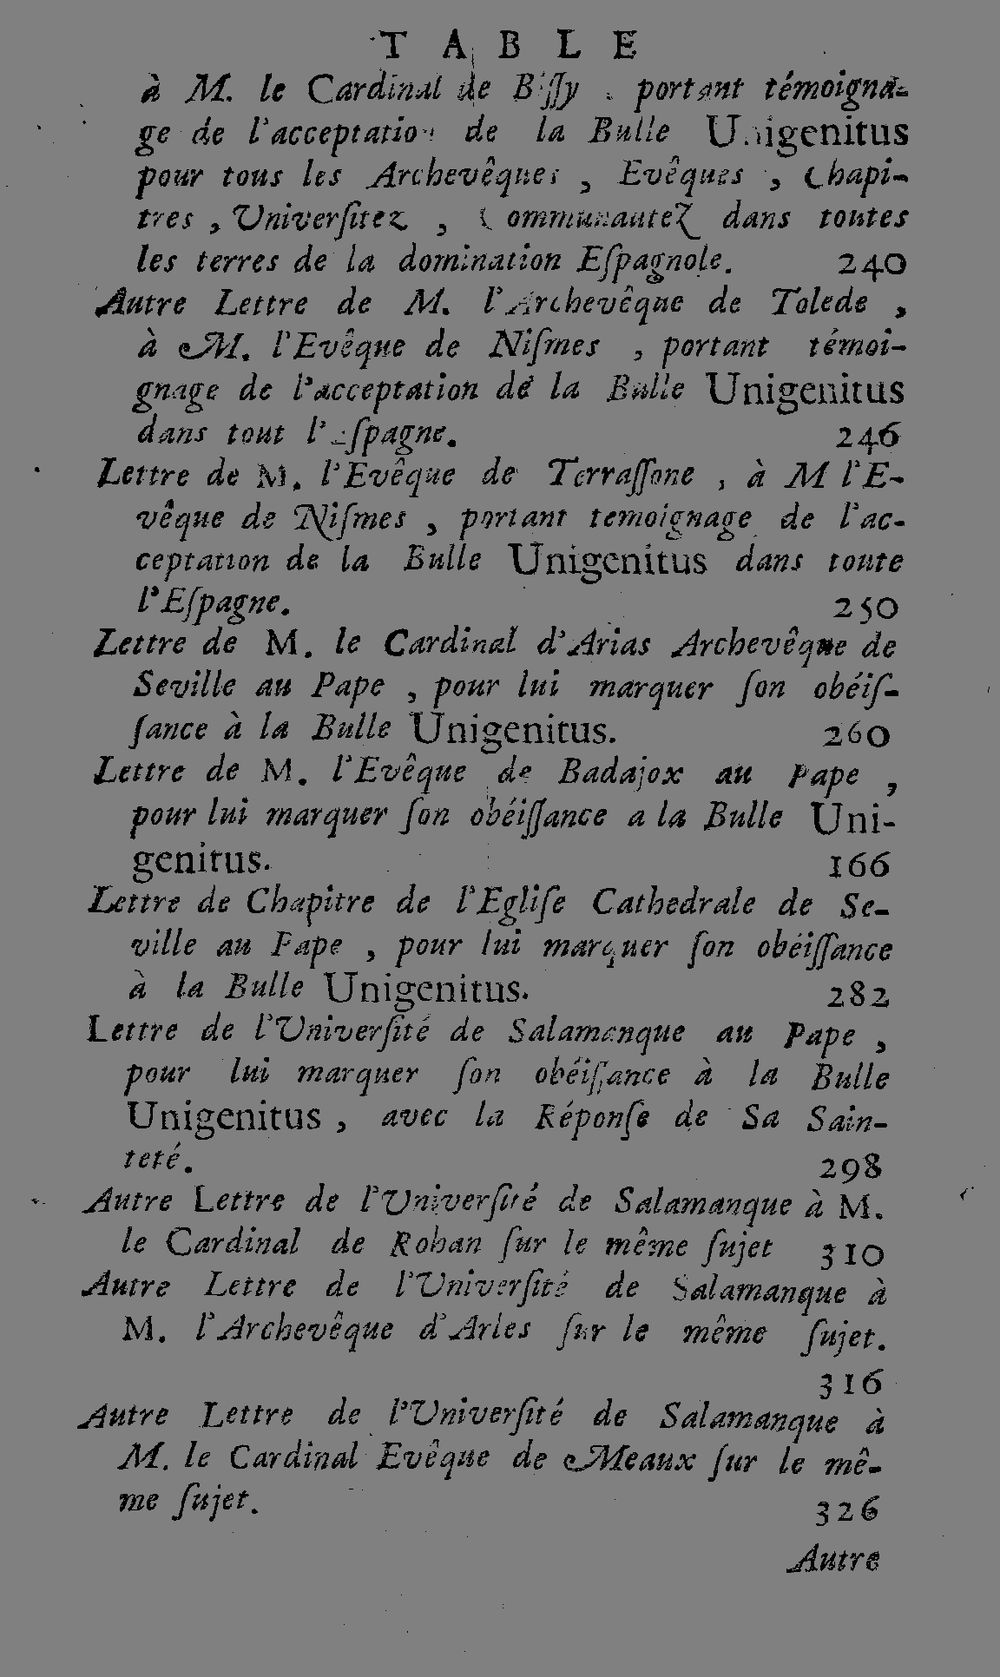 TABLE
à M. le Cardinal de Bissy, portant témoigna-
ge de l'acceptation de la Bulle Unigenitus
pour tous les Archevêques, Evêques, Chapi-
tres, Univerſitez, Communautez dans toutes
les terres de la domination Eſpagnole. 240
Autre Lettre de M. l'Archevêque de Tolede,
à M. l'Evêque de Niſmes, portant témoi-
gnage de l'acceptation de la Bulle Unigenitus
dans tout l'Eſpagne. 246
Lettre de M. l'Evêque de Terraſſone, à M l'E-
vêque de Niſmes, portant temoignage de l'ac-
ceptation de la Bulle Unigenitus dans toute
l'Eſpagne. 250
Lettre de M. le Cardinal d'Arias Archevêque de
Seville au Pape, pour lui marquer ſon obéiſ-
ſance à la Bulle Unigenitus. 260
Lettre de M. l'Evêque de Badajox au Pape,
pour lui marquer ſon obéiſſance a la Bulle Uni-
genitus. 166
Lettre de Chapitre de l'Egliſe Cathedrale de Se-
ville au Pape, pour lui marquer ſon obéiſſance
à la Bulle Unigenitus. 282
Lettre de l'Univerſité de Salamanque au Pape,
pour lui marquer ſon obéiſſance à la Bulle
Unigenitus, avec la Réponſe de Sa Sain-
teté. 298
Autre Lettre de l'Univerſité de Salamanque à M.
le Cardinal de Rohan ſur le même ſujet 310
Autre Lettre de l'Univerſité de Salamanque à
M. l'Archevêque d'Arles ſur le même ſujet.
316
Autre Lettre de l'Univerſité de Salamanque à
M. le Cardinal Evêque de Meaux ſur le mê-
me ſujet. 326
Autre